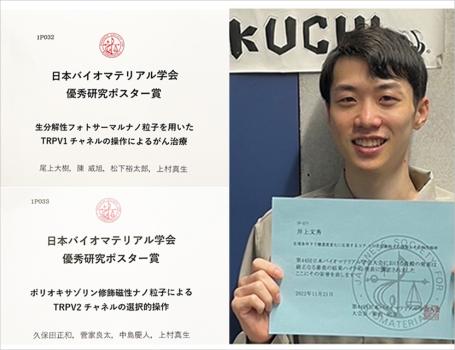 1P032
日本バイオマテリアル学会
優秀研究ポスター賞
生分解性フォトサーマルナノ粒子を用いた
TRPV1 チャネルの操作によるがん治療
尾上大樹, 陳 威旭, 松下裕太郎, 上村真生
1P033
日本バイオマテリアル学会
優秀研究ポスター賞
ポリオキサゾリン修飾磁性ナノ粒子による
TRPV2 チャネルの選択的操作
久保田正和, 菅家良太, 中島慶人, 上村真生
KUCHI
井上文秀
2022年11月21日